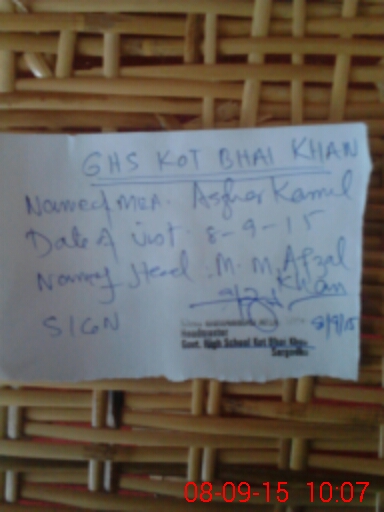 GHS KOT BHAI KHAN
Name of MEA. Asghar Kamal
Date of visit. 8-9-15
Name of Head. M. M. Afzal
Khan
SIGN
8/9/15
Headmaster
Govt. High School Kot Bhai Khan
Sargodha
08-09-15 10:07